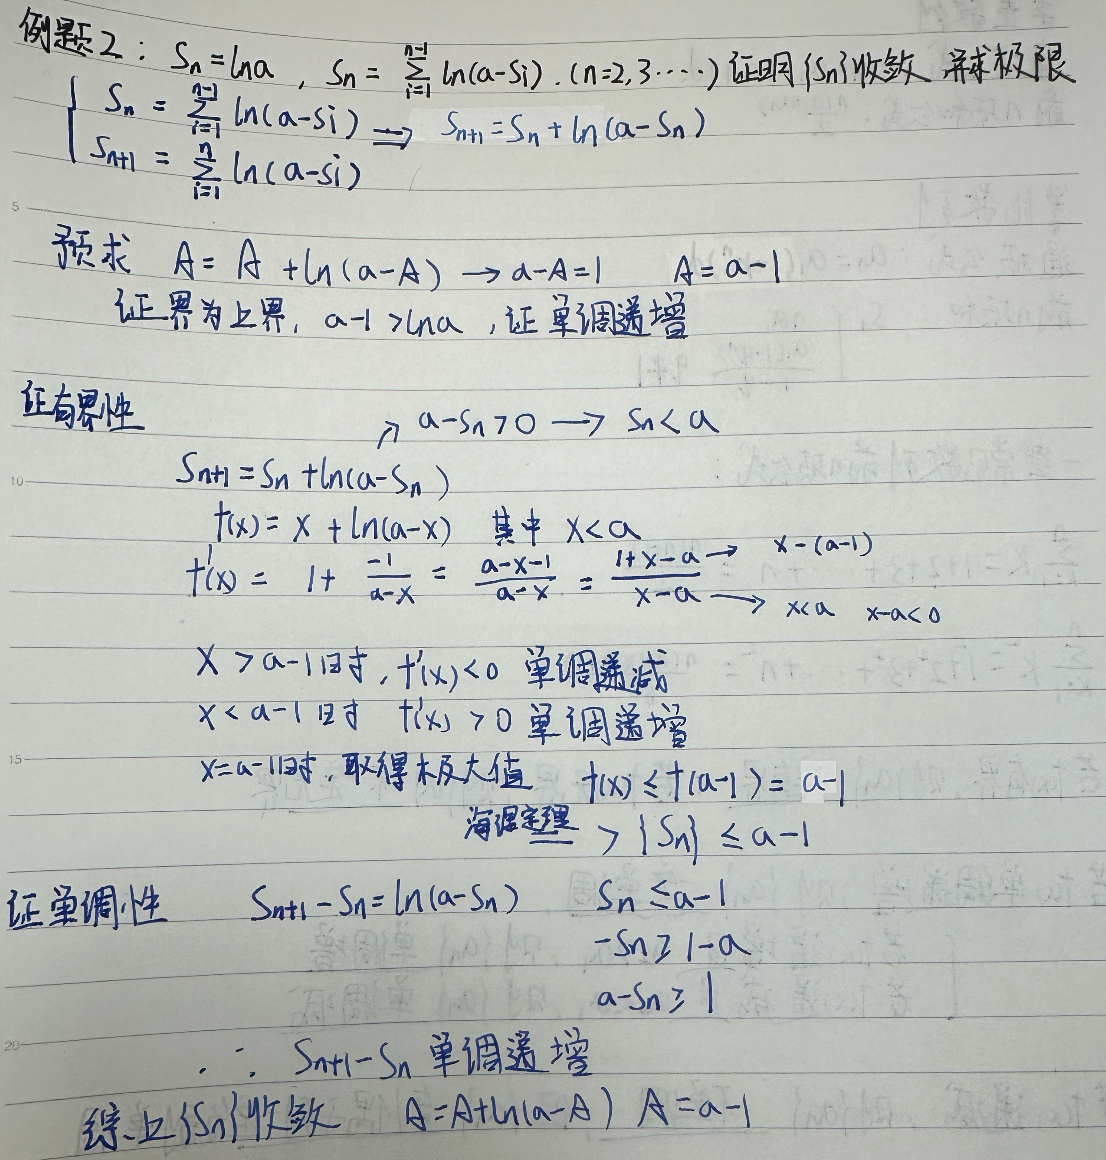 例题2: Sn=lna, Sn=∑_{i=1}^{n-1} ln(a-Si). (n=2,3·····) 证明{Sn}收敛 并求极限
{ Sn = ∑_{i=1}^{n-1} ln(a-Si) ⟹ Sn+1=Sn+ln(a-Sn)
Sn+1 = ∑_{i=1}^{n} ln(a-Si)
5
预求 A=A+ln(a-A) → a-A=1 A=a-1
证界为上界, a-1>lna, 证单调递增
证有界性
↗ a-Sn>0 → Sn<a
10
Sn+1=Sn+ln(a-Sn)
f(x)=x+ln(a-x) 其中 x<a
f'(x)= 1+ \frac{-1}{a-x} = \frac{a-x-1}{a-x} = \frac{1+x-a}{x-a} → x-(a-1)
→ x<a x-a<0
x>a-1时, f'(x)<0 单调递减
x<a-1时 f'(x)>0 单调递增
15
x=a-1时, 取得极大值 f(x)≤f(a-1)=a-1
> {Sn}≤a-1
证单调性 Sn+1-Sn=ln(a-Sn) Sn≤a-1
-Sn≥1-a
a-Sn≥1
20
∴ Sn+1-Sn 单调递增
综上{Sn}收敛 A=A+ln(a-A) A=a-1